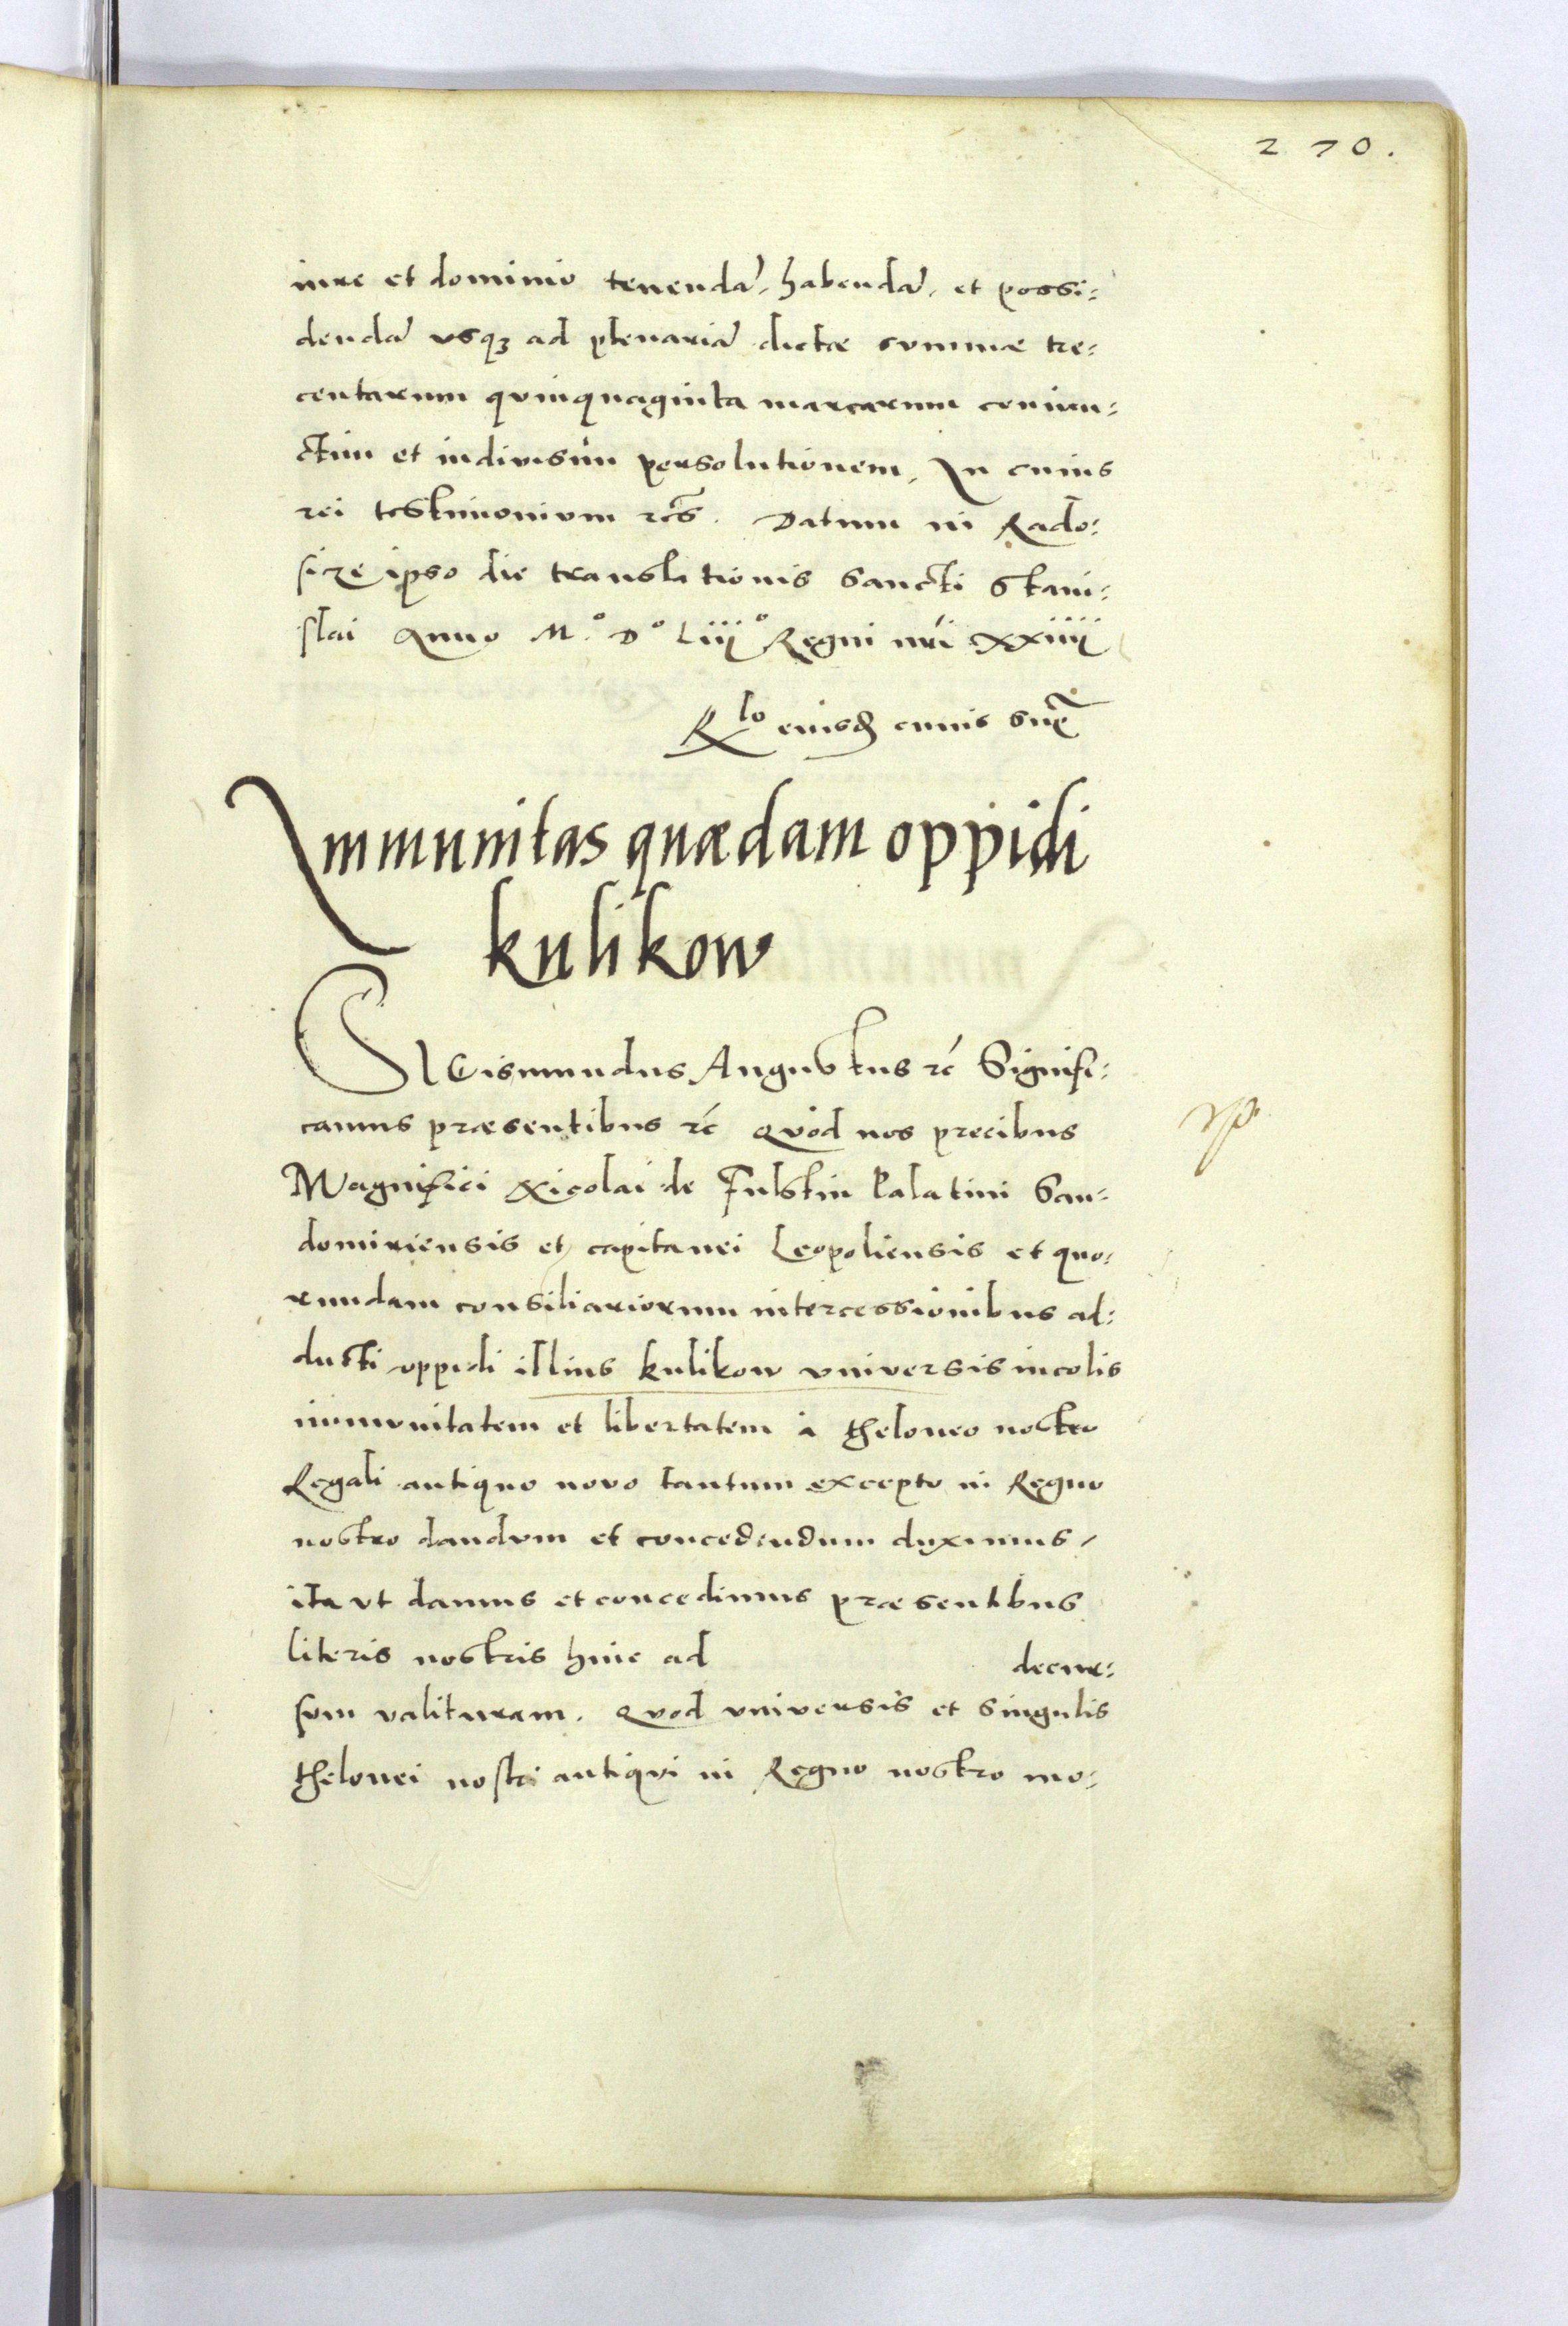 270.
iure et dominio tenenda͂, habenda͂, et possi:
denda͂ vsqꝫ ad plenaria͂ dictæ summæ tre:
centarum quinquaginta marcarum coniun:
ctim et indivisim persolutionem, In cuius
rei testimonium rc̃s. Datum in Rado:
sice ipso die translationis Sancti Stani:
slai Anno M.º Dº Liiiº Regni nr̃i xxiiii
Rlo eiusd
Immunitas quædam oppidi
kulikow
SIGismundus Augustus rc̃ Signifi:
camus præsentibus rc̃ Quòd nos precibus
Magnifici Nicolai de Fulstin Palatini San:
domiriensis et capitanei Leopoliensis et quo:
rundam consiliariorum intercessionibus ad:
ducti oppidi illius kulikow vniversis incolis
immunitatem et libertatem à theloneo nostro
Regali antiquo novo tantum excepto in Regno
nostro dandum et concedendum duximus,
ita vt damus et concedimus præsentibus
literis nostris hinc ad decur:
sum valituram. Quod vniversis et singulis
thelonei nostri antiqui in Regno nostro mo: